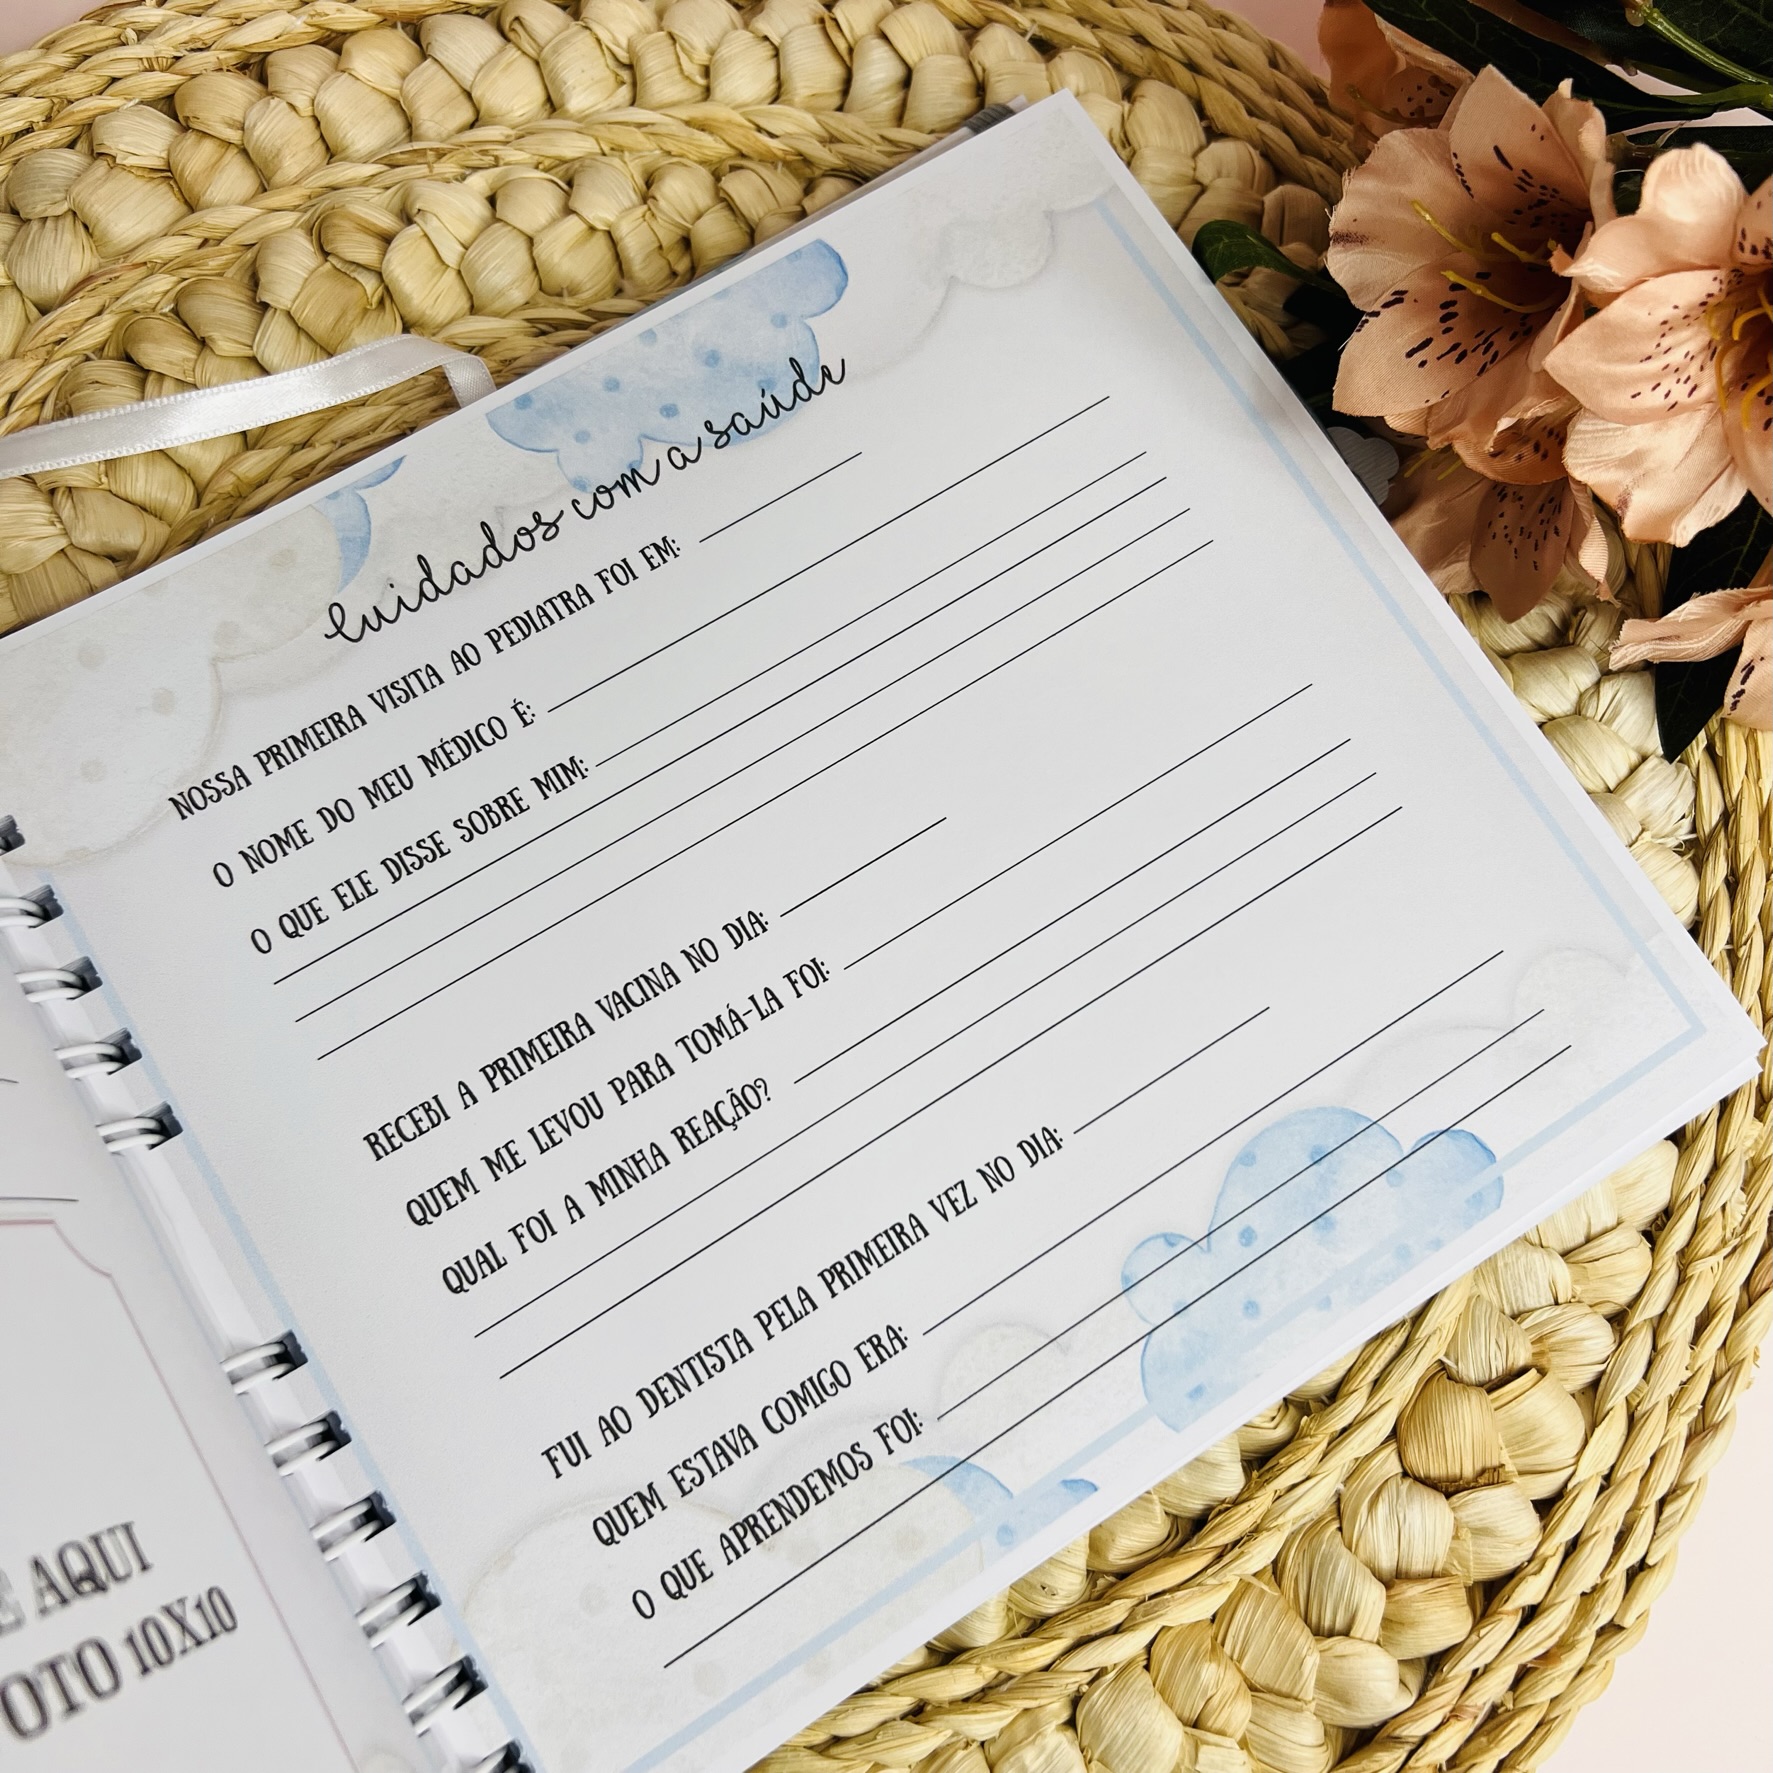 Cuidados com a saúde
NOSSA PRIMEIRA VISITA AO PEDIATRA FOI EM:
O NOME DO MEU MÉDICO É:
O QUE ELE DISSE SOBRE MIM:
RECEBI A PRIMEIRA VACINA NO DIA:
QUEM ME LEVOU PARA TOMÁ-LA FOI:
QUAL FOI A MINHA REAÇÃO?
FUI AO DENTISTA PELA PRIMEIRA VEZ NO DIA:
QUEM ESTAVA COMIGO ERA:
O QUE APRENDEMOS FOI:
AQUI
10X10